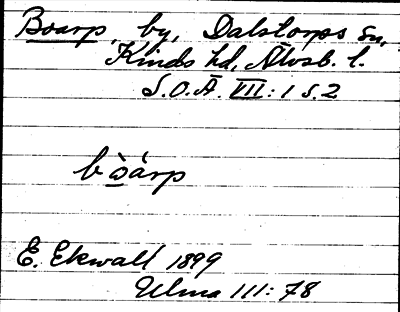 Boarp, by, Dalstorps sn,
Kinds hd, Älvsb. l.
S.O.Ä. VII: 1 s. 2
bò̲árp
E. Ekwall 1899
Ulma 111: 78